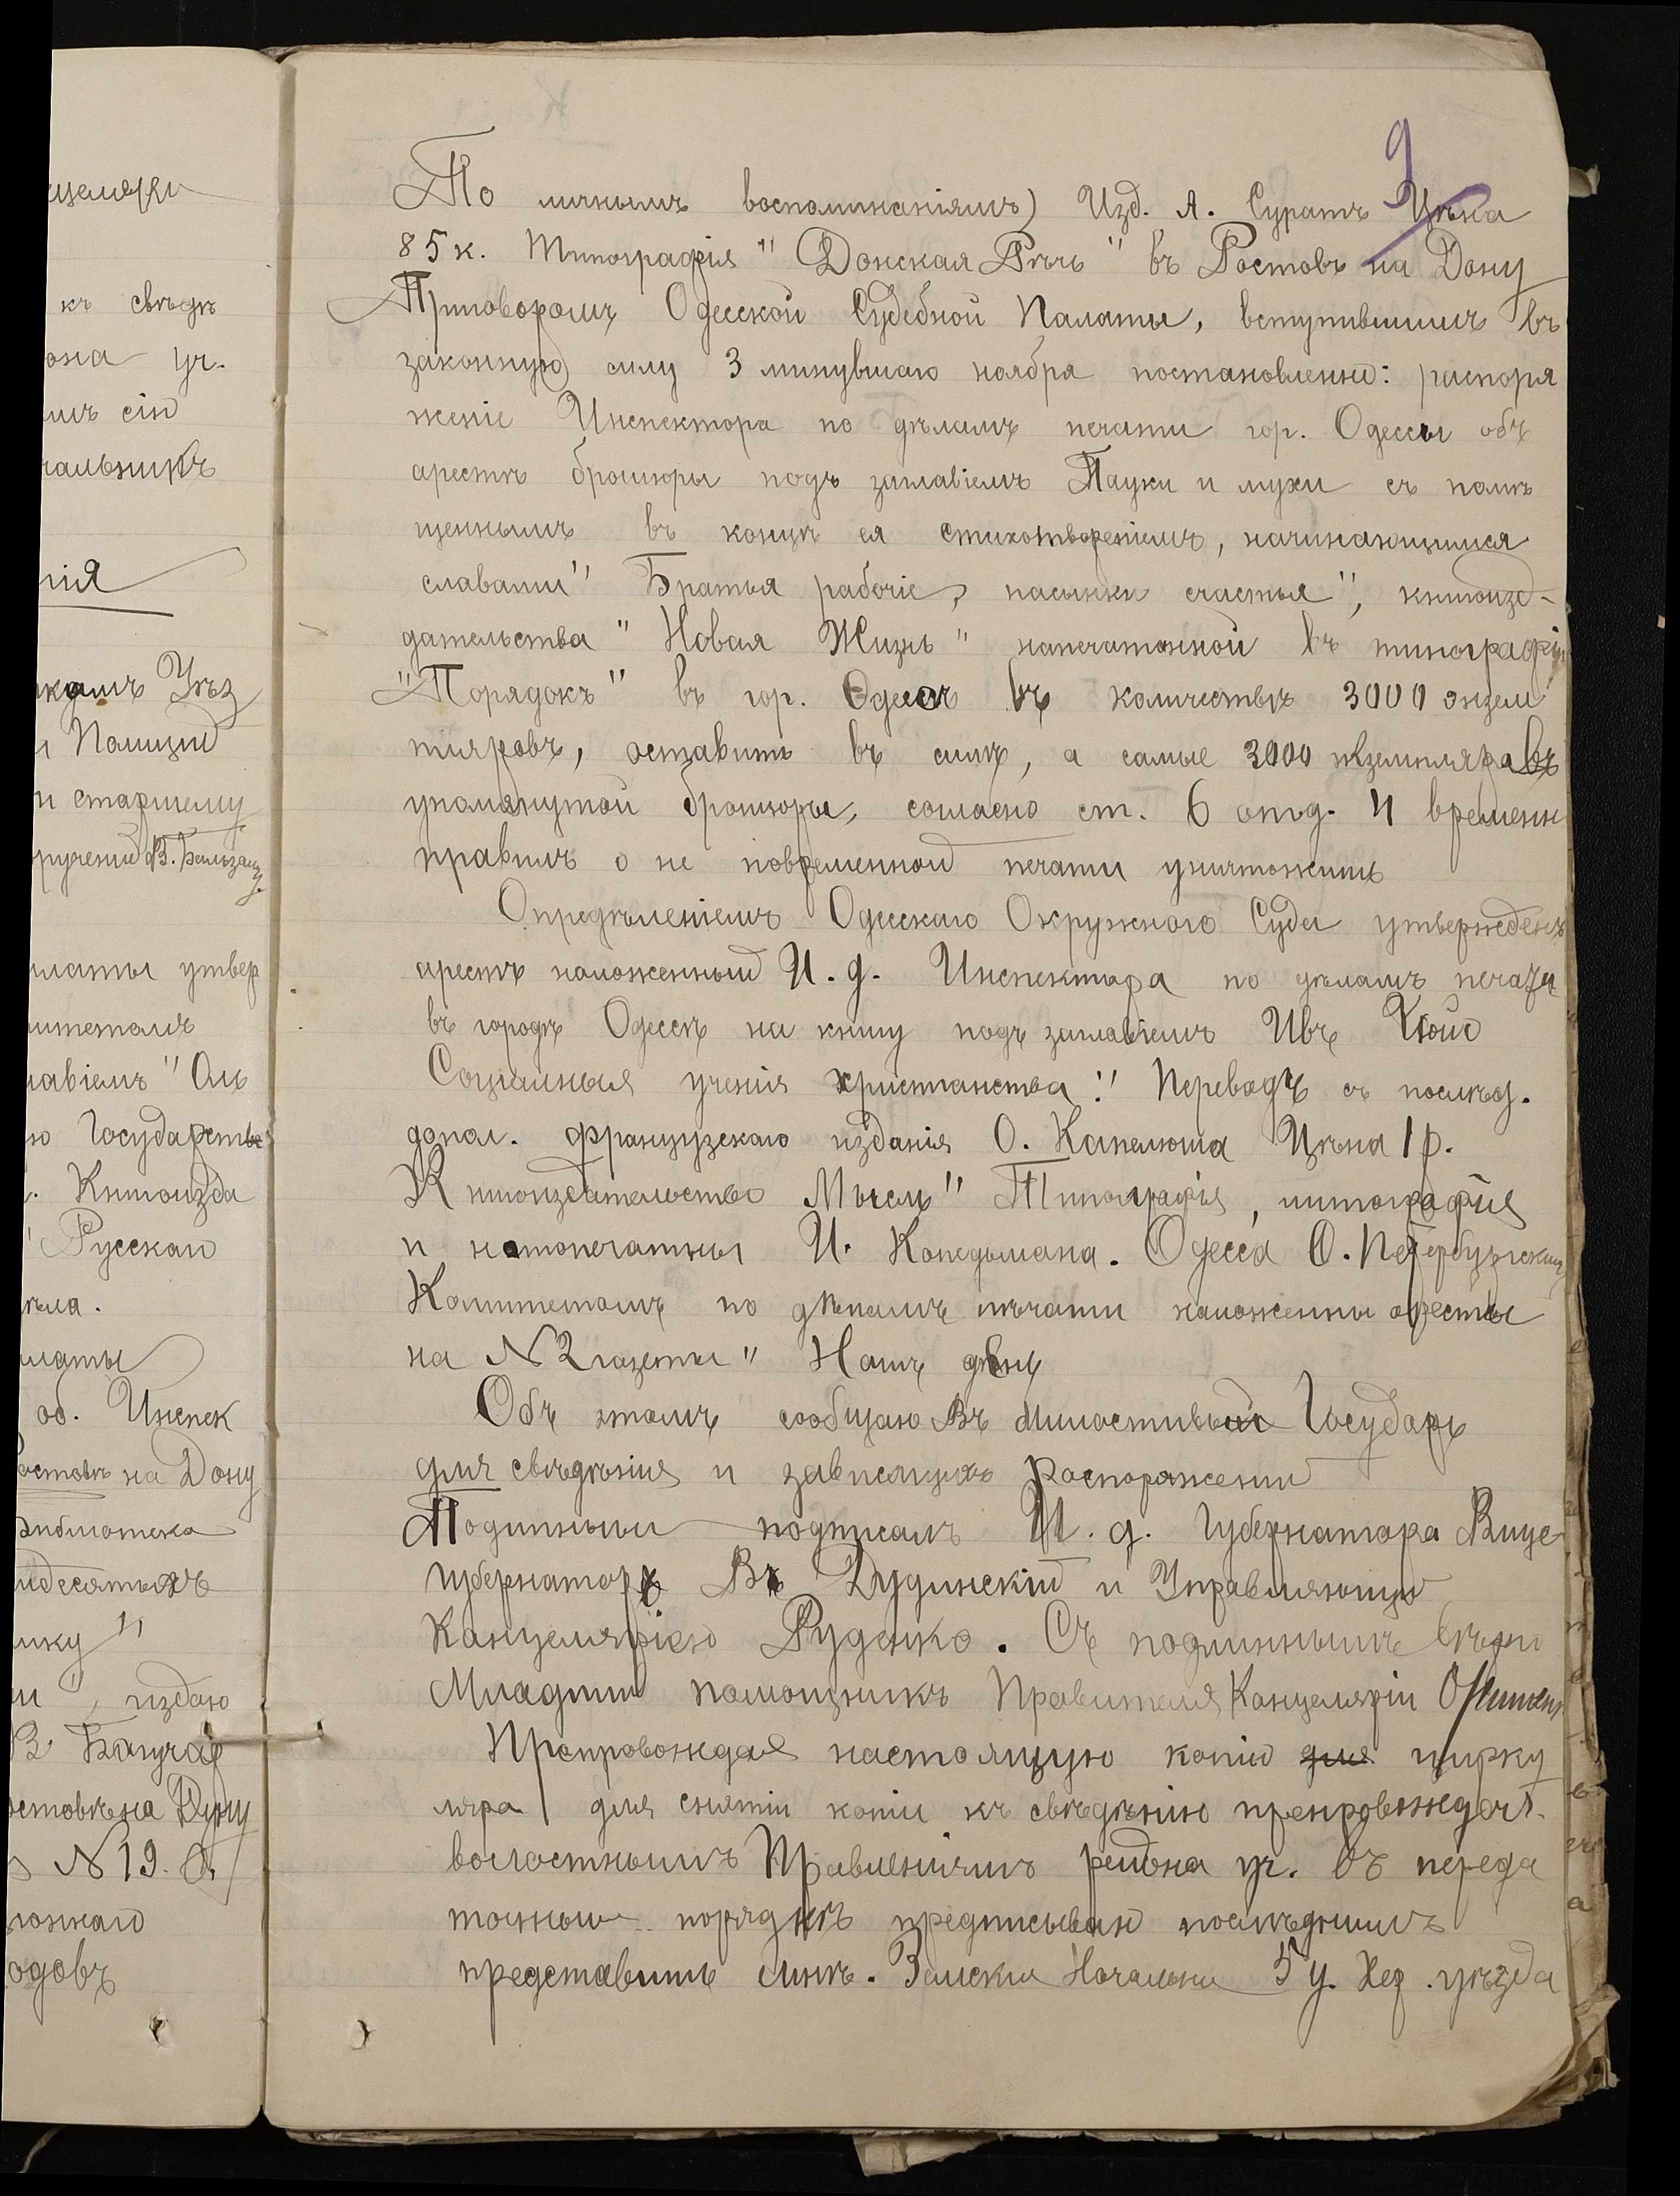 9
По личнымъ воспоминаніямъ) Изд. А. Суратъ Цѣна
85 к. Типографія "Донская Рѣчь" въ Ростовѣ на Дону
Приговоромъ Одесской Судебной Палаты, вступившимъ въ
законную силу 3 минувшаго ноября постановлено: распоря
женіе Инспектора по дѣламъ печати гор. Одессы объ
арестѣ брошюры подъ заглавіемъ Пауки и мухи съ помѣ
щеннымъ въ концѣ ея стихотвореніемъ, начинающимся
славами" Братья рабочіе, пасынки счастья", книгоизд-
дательства "Новая Жизнь" напечатанной въ типографіи
"Порядокъ" въ гор. Одессѣ въ количествѣ 3000 экзем
пляровъ, оставить въ силѣ, а самые 3000 экземпляровъ
упомянутой брошюры, согласно ст. 6 отд. 4 временн
правилъ о не повременной печати уничтожить
Опредѣленіемъ Одесскаго Окружного Суда утвержденъ
арестъ наложенный И. д. Инспектора по дѣламъ печати
въ городѣ Одессѣ на книгу подъ заглавіемъ Ивъ Гюйо
Соціальныя ученія христіанства" Переводъ съ послѣд.
допол. французскаго изданія О. Капелюша Цѣна 1 р.
Книгоиздательство Мысль" Типографія, литографія
и нотопечатныя И. Копельмана. Одесса С. Петербургским
Комитетомъ по дѣламъ печати наложенны аресты
на N 2 газеты "Нашъ день
Объ этомъ сообщаю Въ Милостивый Государь
для свѣдѣнія и зависящихъ распоряженій
Подлинный подписалъ И. д. Губернатора Вице
губернаторъ Въ Дудинскій и Управляющій
Канцеляріею Руденко. Съ подлиннымъ вѣрно
Младшій помощникъ Правителя Канцеляріи
Препровождая настоящую копію для цирку
ляра для снятіи копіи къ свѣдѣнію препровождая
волостнымъ Правленіямъ района уч. въ переда
точномъ порядкѣ предписываю послѣднимъ
представить мнѣ. Земскій Начальни 5 у. Хер. уѣзда
къ свѣдѣ
она уч.
имъ сію
чальникъ
нія
камъ Уѣз
и Полиціи
и старшему
латы утвер
митетомъ
лавіемъ "
ю Государств
Книгоизда
Русская
ѣла.
латы
об. Инспек
остовѣ на Дону
библиотека
идесятыхъ
ику "
и", издаю
остовѣ на Дону
N 19.
ложнаго
одовъ